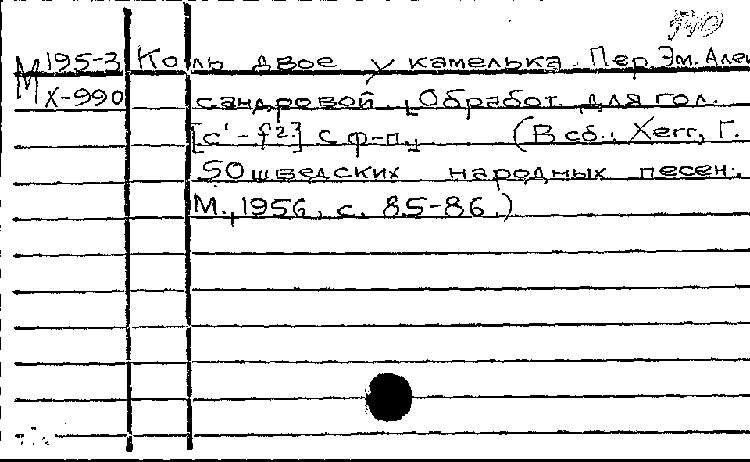 М 195-3 Коль двое у камелька. Пер. Эм. Алек
Х-990 сандровой. [Обработ. для гол.
[c' - f²] с ф-п.] (В сб.: Хегг, Г.
50 шведских народных песен.
М., 1956, с. 85-86.)